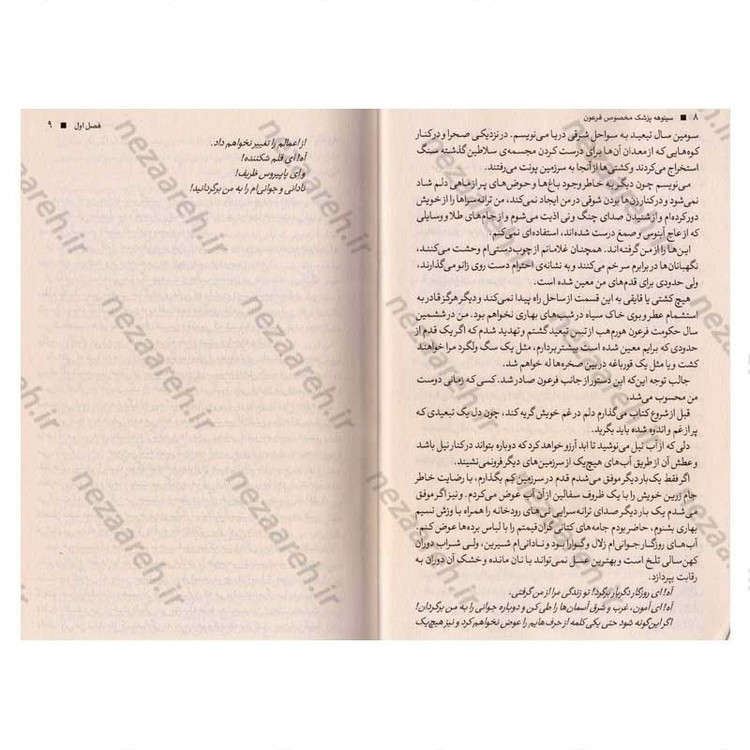 ۸ ■ سینوهه پزشک مخصوص فرعون
سومین سال تبعید به سواحل شرقی دریا می‌نویسم. در نزدیکی صحرا و در کنار
کوه‌هایی که از معدن آن‌ها برای درست کردن مجسمه‌ی سلاطین گذشته سنگ
استخراج می‌کردند و کشتی‌ها از آنجا به سرزمین پونت می‌رفتند.
می‌نویسم چون دیگر به خاطر وجود باغ‌ها و حوض‌های پر از ماهی دلم شاد
نمی‌شود و در کنار زن‌ها بودن شوقی در من ایجاد نمی‌کند، من ترانه‌سراها را از خویش
دور کرده‌ام و از شنیدن صدای چنگ ونی اذیت می‌شوم و از جام‌های طلا و وسایلی
که از عاج آبنوسی و صمغ درست شده‌اند، استفاده‌ای نمی‌کنم.
این‌ها را از من گرفته‌اند. همچنان غلامانم از چوب‌دستی‌ام وحشت می‌کنند،
نگهبان‌ها در برابرم سر خم می‌کنند و به نشانه‌ی احترام دست روی زانو می‌گذارند،
ولی حدودی برای قدم‌های من معین شده است.
هیچ کشتی یا قایقی به این قسمت از ساحل راه پیدا نمی‌کند و دیگر هرگز قادر به
استشمام عطر و بوی خاک سیاه در شب‌های بهاری نخواهم بود. من در ششمین
سال حکومت فرعون هورم‌هب از تبس تبعید گشتم و تهدید شدم که اگر یک قدم از
حدودی که برایم معین شده است بیشتر بردارم، مثل یک سگ ولگرد مرا خواهند
کشت و یا مثل یک قورباغه در بین صخره‌ها له خواهم شد.
جالب توجه این‌که این دستور از جانب فرعون صادر شد. کسی که زمانی دوست
من محسوب می‌شد.
قبل از شروع کتاب می‌گذارم دلم در غم خویش گریه کند، چون دل یک تبعیدی که
پر از غم و اندوه شده باید بگرید.
دلی که از آب نیل می‌نوشید تا ابد آرزو خواهد کرد که دوباره بتواند در کنار نیل باشد
و عطش آن از طریق آب‌های هیچ‌یک از سرزمین‌های دیگر فرو نمی‌نشیند.
اگر فقط یک‌بار دیگر موفق می‌شدم قدم در سرزمین کم بگذارم، با رضایت خاطر
جام زرین خویش را با یک ظروف سفالین از آن آب عوض می‌کردم. و نیز اگر موفق
می‌شدم یک بار دیگر صدای ترانه‌سرایی نی‌های رودخانه را همراه با وزش نسیم
بهاری بشنوم، حاضر بودم جامه‌های کتانی گران‌قیمتم را با لباس برده‌ها عوض کنم.
آب‌های روزگار جوانی‌ام زلال و گوارا بود و نادانی‌ام شیرین، ولی شراب دوران
کهن‌سالی تلخ است و بهترین عسل نمی‌تواند با نان مانده و خشک آن دوران به
رقابت بپردازد.
آه! ای روزگار دگربار برگرد! تو زندگی مرا از من گرفتی.
آه! ای آمون، غرب و شرق آسمان‌ها را طی کن و دوباره جوانی را به من برگردان!
اگر این‌گونه شود حتی یکی کلمه از حرف‌هایم را عوض نخواهم کرد و نیز هیچ‌یک
فصل اول ■ ۹
از اعمالم را تغییر نخواهم داد.
آه! ای قلم شکننده!
و ای پاپیروس ظریف!
نادانی و جوانی‌ام را به من برگردانید!
nezaareh.ir
nezaareh.ir
nezaareh.ir
nezaareh.ir
nezaareh.ir
nezaareh.ir
nezaareh.ir
nezaareh.ir
nezaareh.ir